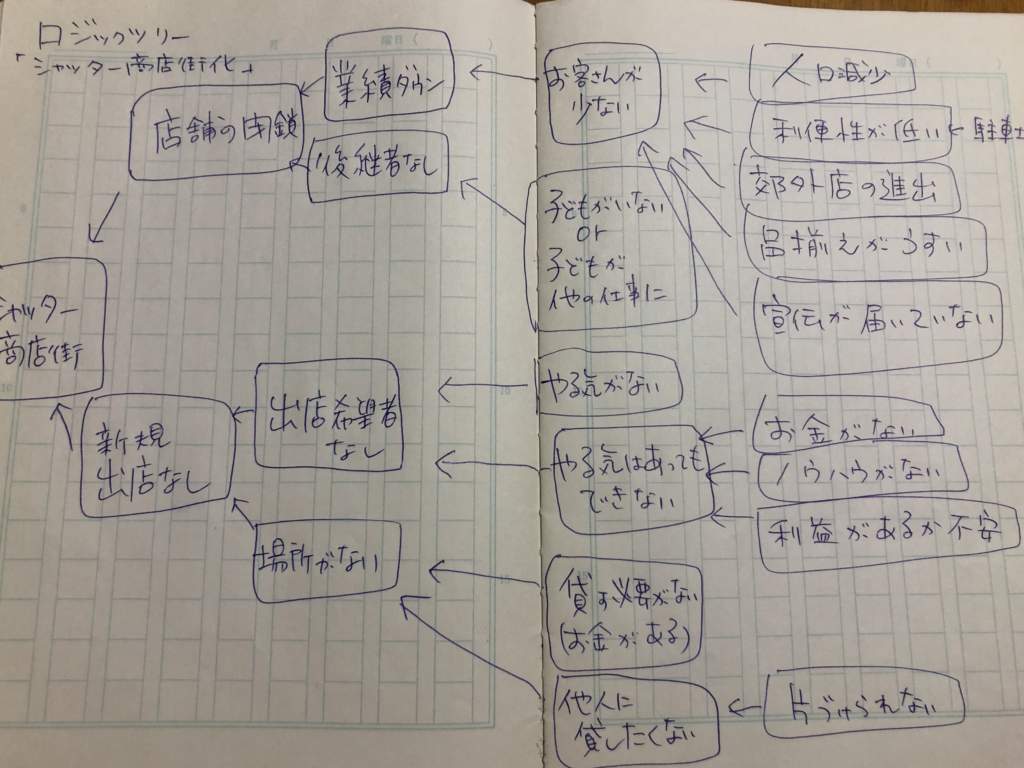 ロジックツリー
「シャッター商店街化」
業績ダウン
店舗の閉鎖
後継者なし
シャッター
商店街
出店希望者
なし
新規
出店なし
場所がない
お客さんが
少ない
人口減少
利便性が低い 駐車
郊外店の進出
品揃えがうすい
宣伝が届いていない
子どもがいない
or
子どもが
他の仕事に
やる気がない
やる気はあっても
できない
お金がない
ノウハウがない
利益があるか不安
貸す必要がない
(お金がある)
他人に
貸したくない
片づけられない
曜日(
)
月